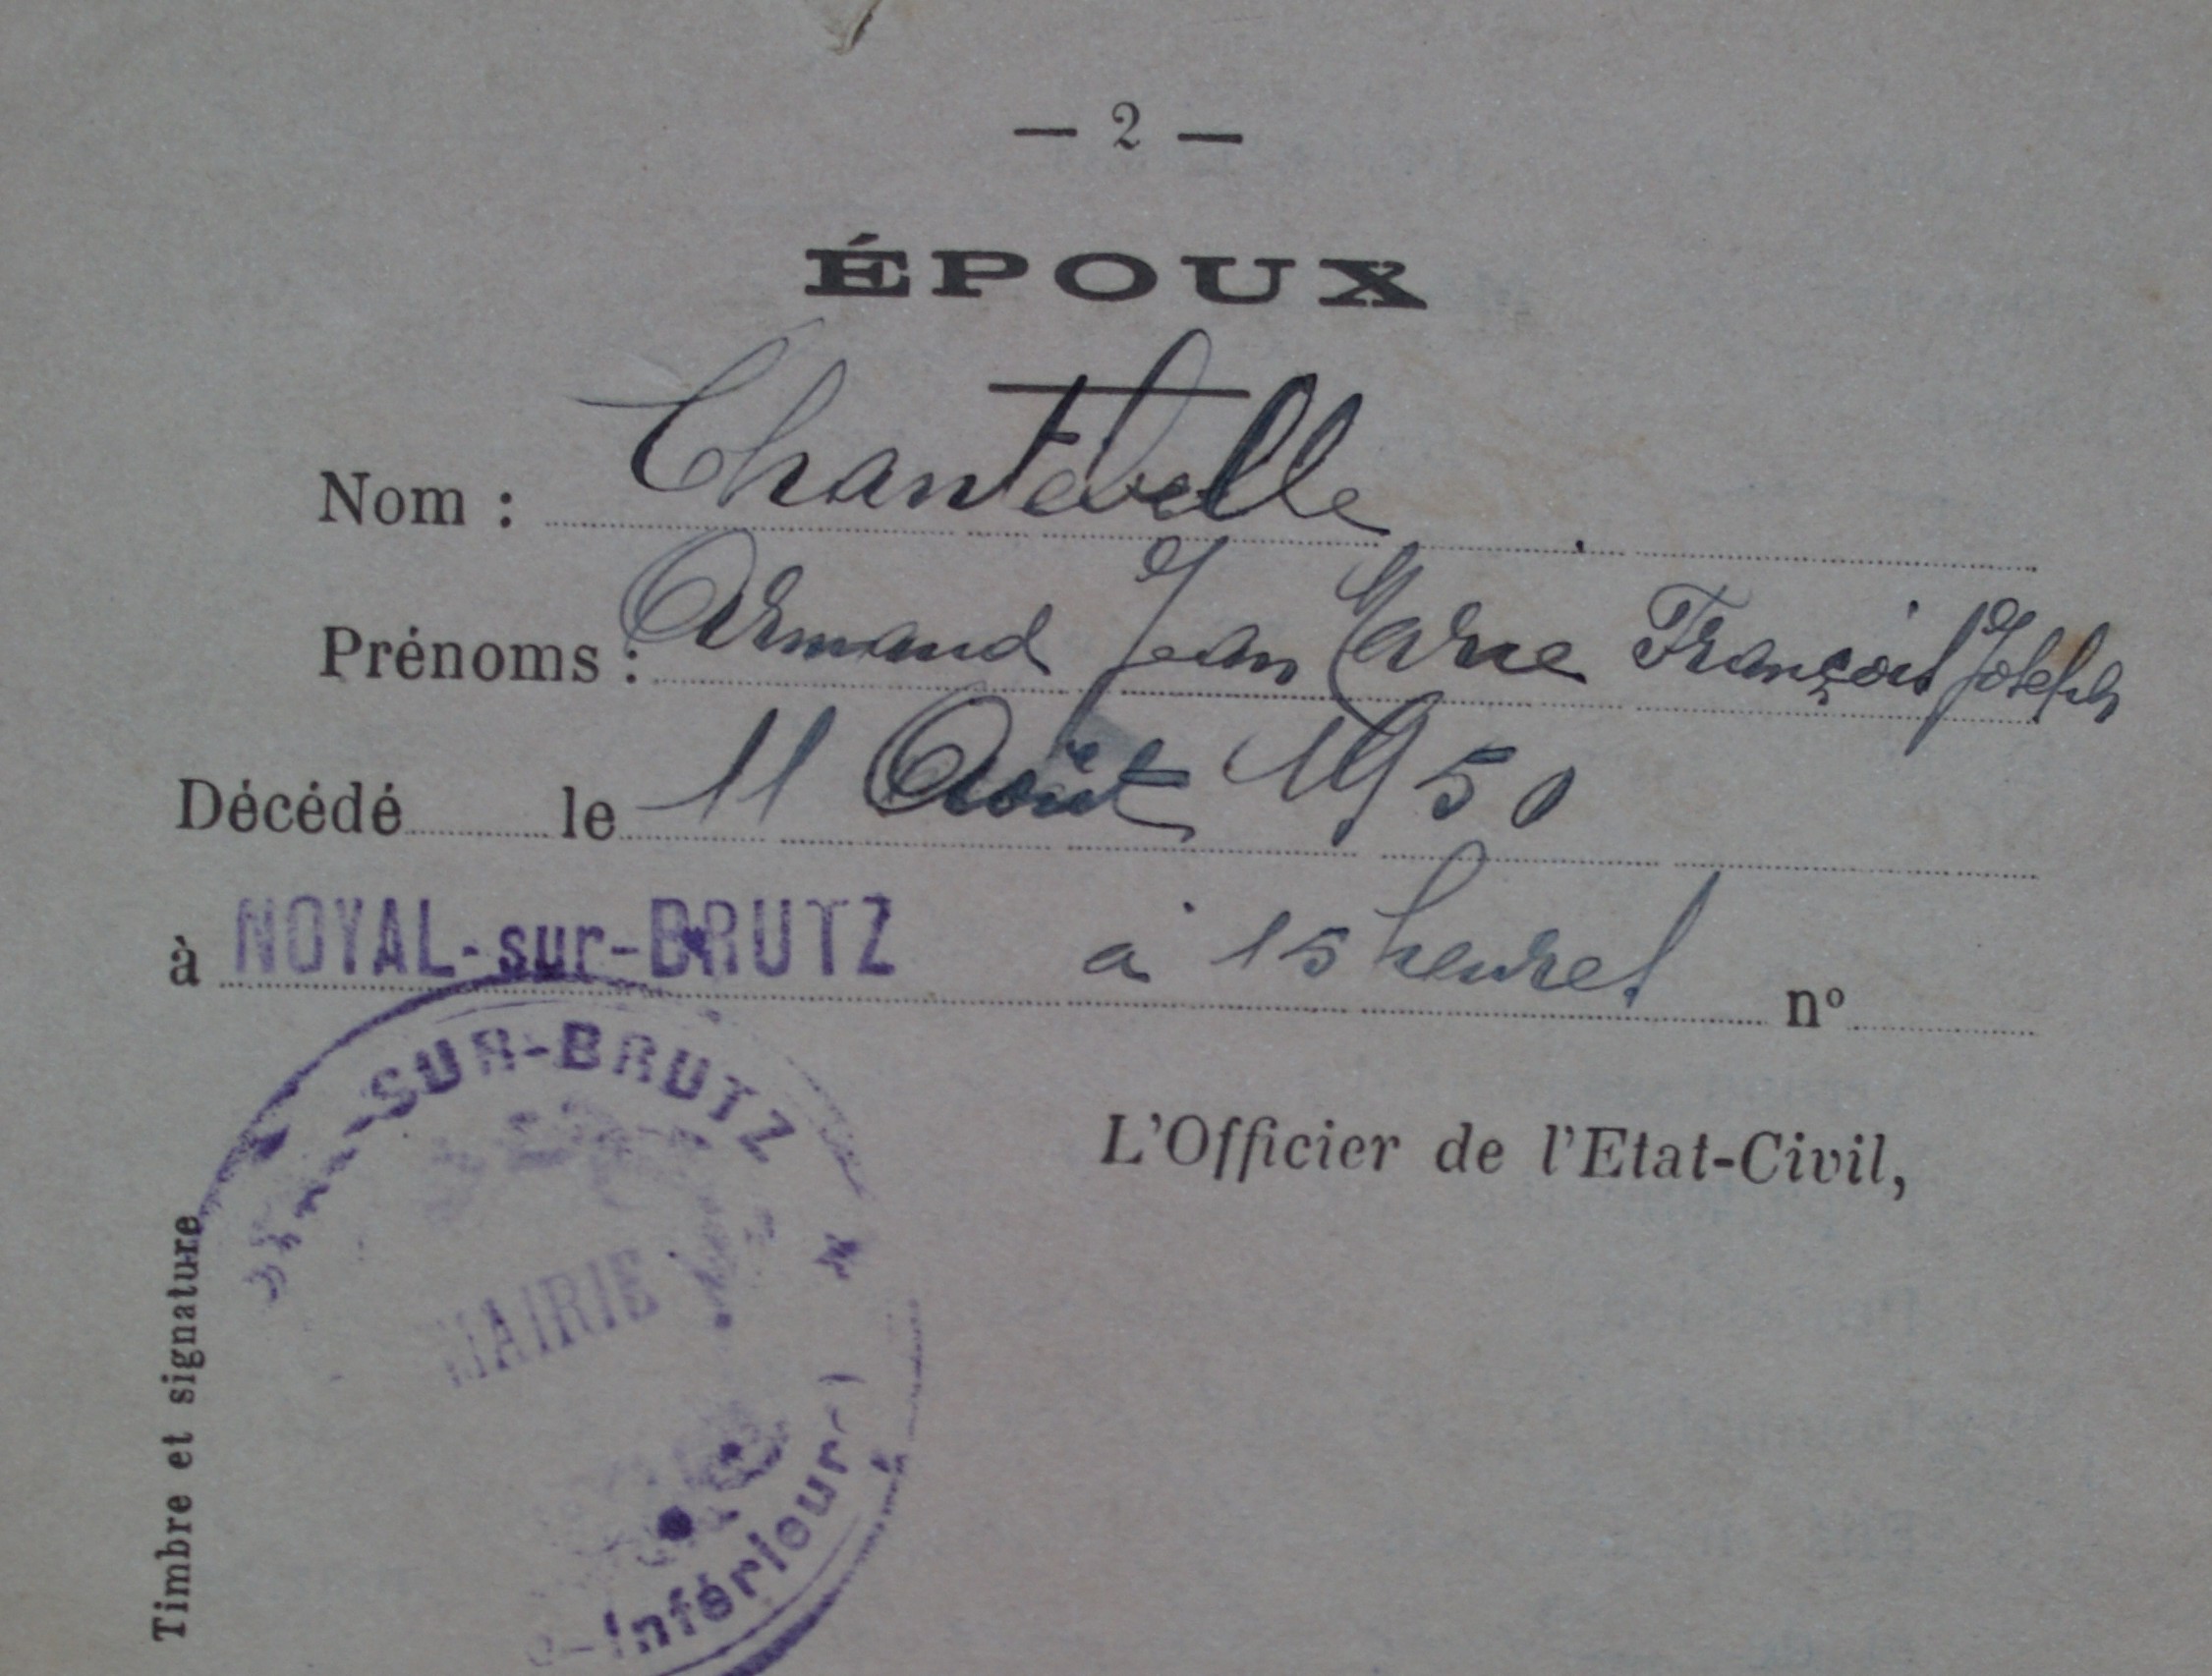 — 2 —
ÉPOUX
Nom : Chantebelle
Prénoms : Armand Jean Marie François Joseph
Décédé le 11 Août 1950
à NOYAL-sur-BRUTZ à 15 heures n°
SUR-BRUTZ
L'Officier de l'Etat-Civil,
MAIRIE
Timbre et signature
-Inférieure)